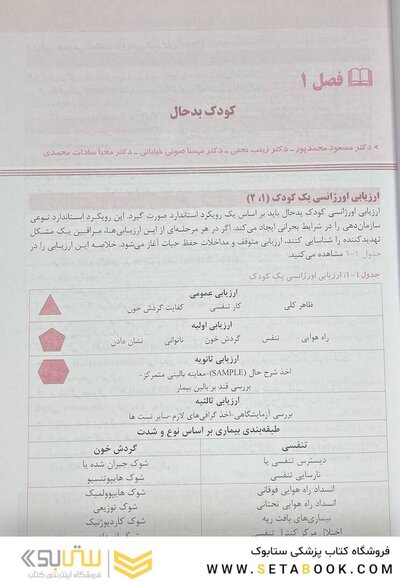 فصل ۱
کودک بدحال
دکتر مسعود محمدپور ـ دکتر زینب نجفی ـ دکتر مهسا صوتی خیابانی ـ دکتر محیا سادات محمدی
ارزیابی اورژانسی یک کودک (۱، ۲)
ارزیابی اورژانسی کودک بدحال باید بر اساس یک رویکرد استاندارد صورت گیرد. این رویکرد استاندارد نوعی
سازمان‌دهی را در شرایط بحرانی ایجاد می‌کند. اگر در هر مرحله‌ای از این ارزیابی‌ها، مراقبین یک مشکل
تهدیدکننده را شناسایی کنند، ارزیابی متوقف و مداخلات حفظ حیات آغاز می‌شود. خلاصه این ارزیابی را در
جدول ۱-۱ مشاهده می‌کنید.
جدول ۱-۱: ارزیابی اورژانسی یک کودک
ارزیابی عمومی
ظاهر کلی کار تنفسی کفایت گردش خون
ارزیابی اولیه
راه هوایی تنفس گردش خون ناتوانی نشان دادن
ارزیابی ثانویه
اخذ شرح حال (SAMPLE)-معاینه بالینی متمرکز-
بررسی قند بر بالین بیمار
ارزیابی ثالثیه
بررسی آزمایشگاهی-اخذ گرافی‌های لازم-سایر تست ها
طبقه‌بندی بیماری بر اساس نوع و شدت
تنفسی گردش خون
دیسترس تنفسی یا شوک جبران شده یا
نارسایی تنفسی شوک هایپوتنسیو
انسداد راه هوایی فوقانی شوک هایپوولمیک
انسداد راه هوایی تحتانی شوک توزیعی
بیماری‌های بافت ریه شوک کاردیوژنیک
اختلال مرکز کنترل تنفسی
ستابوک
فروشگاه اینترنتی کتاب
فروشگاه کتاب پزشکی ستابوک
WWW.SETABOOK.COM